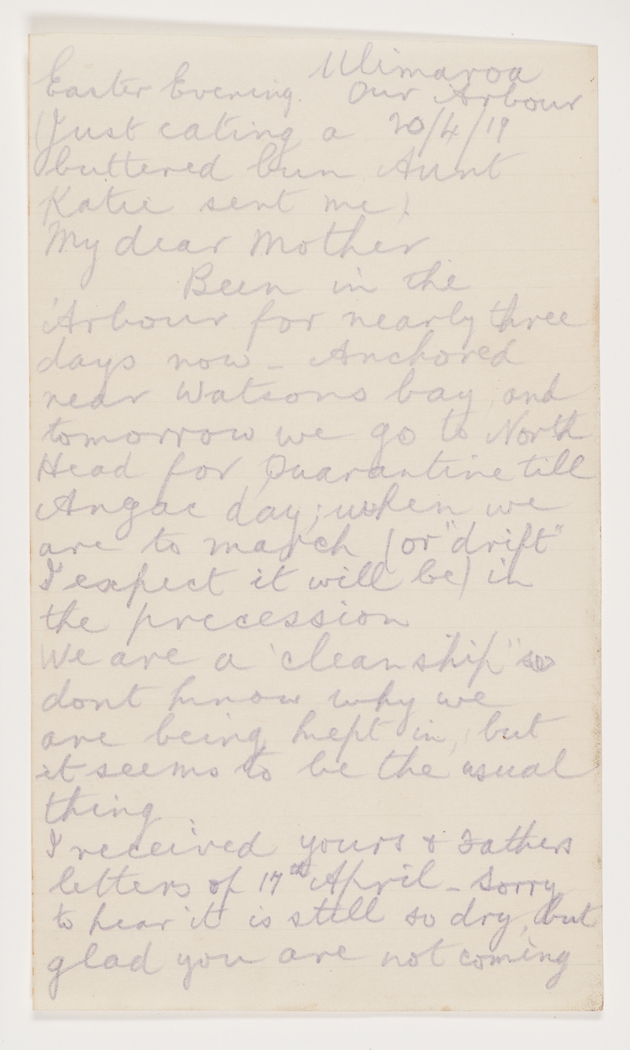 Ulimaroa
Easter Evening. Our 'Arbour
(Just eating a 20/4/19
buttered bun Aunt
Katie sent me)
My dear Mother
Been in the
'Arbour for nearly three
days now - Anchored
near Watsons bay and
tomorrow we go to North
Head for Quarantine till
Anzac day; when we
are to march (or "drift"
I expect it will be) in
the precession
We are a 'clean ship" so
dont know why we
are being kept in, but
it seems to be the usual
thing
I received yours & Fathers
letters of 17th April - Sorry
to hear it is still so dry, but
glad you are not coming